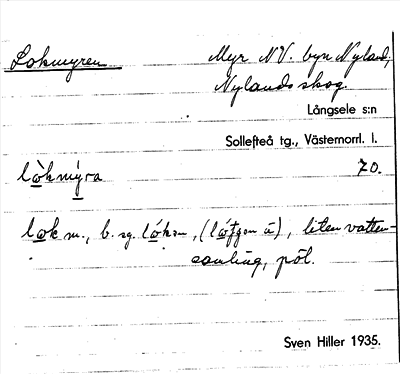 Lokmyren
Myr NV. byn Nyland,
Nylands skog.
Långsele s:n
Sollefteå tg., Västernorrl. l.
lòkmýra 70.
lok m., b. sg. lókən, (lótjen ä), liten vatten-
samling, pöl.
Sven Hiller 1935.